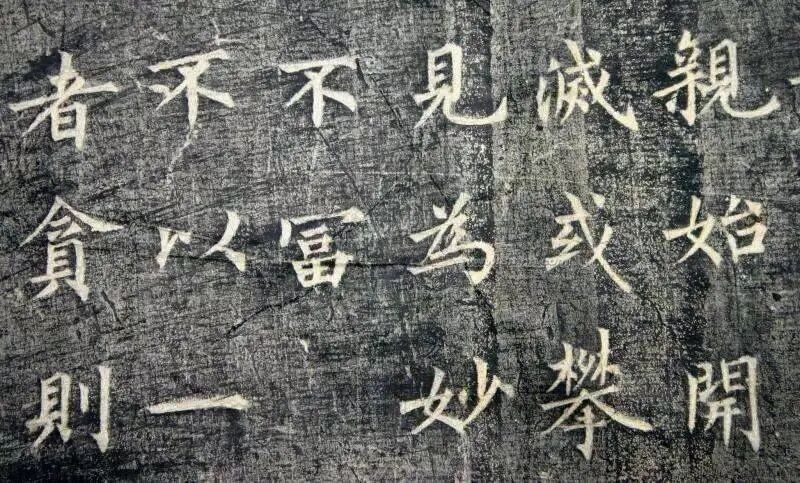 親始開
滅或攀
見為妙
不冨
不以一
者貪則